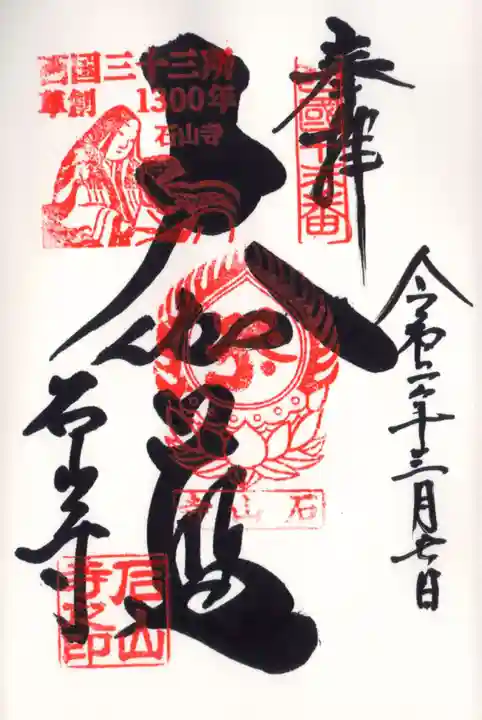 奉拝
西國十三番
令和二年三月七日
西国三十三所
草創 1300年
石山寺
大伽藍
石山寺
石山寺
石山寺之印